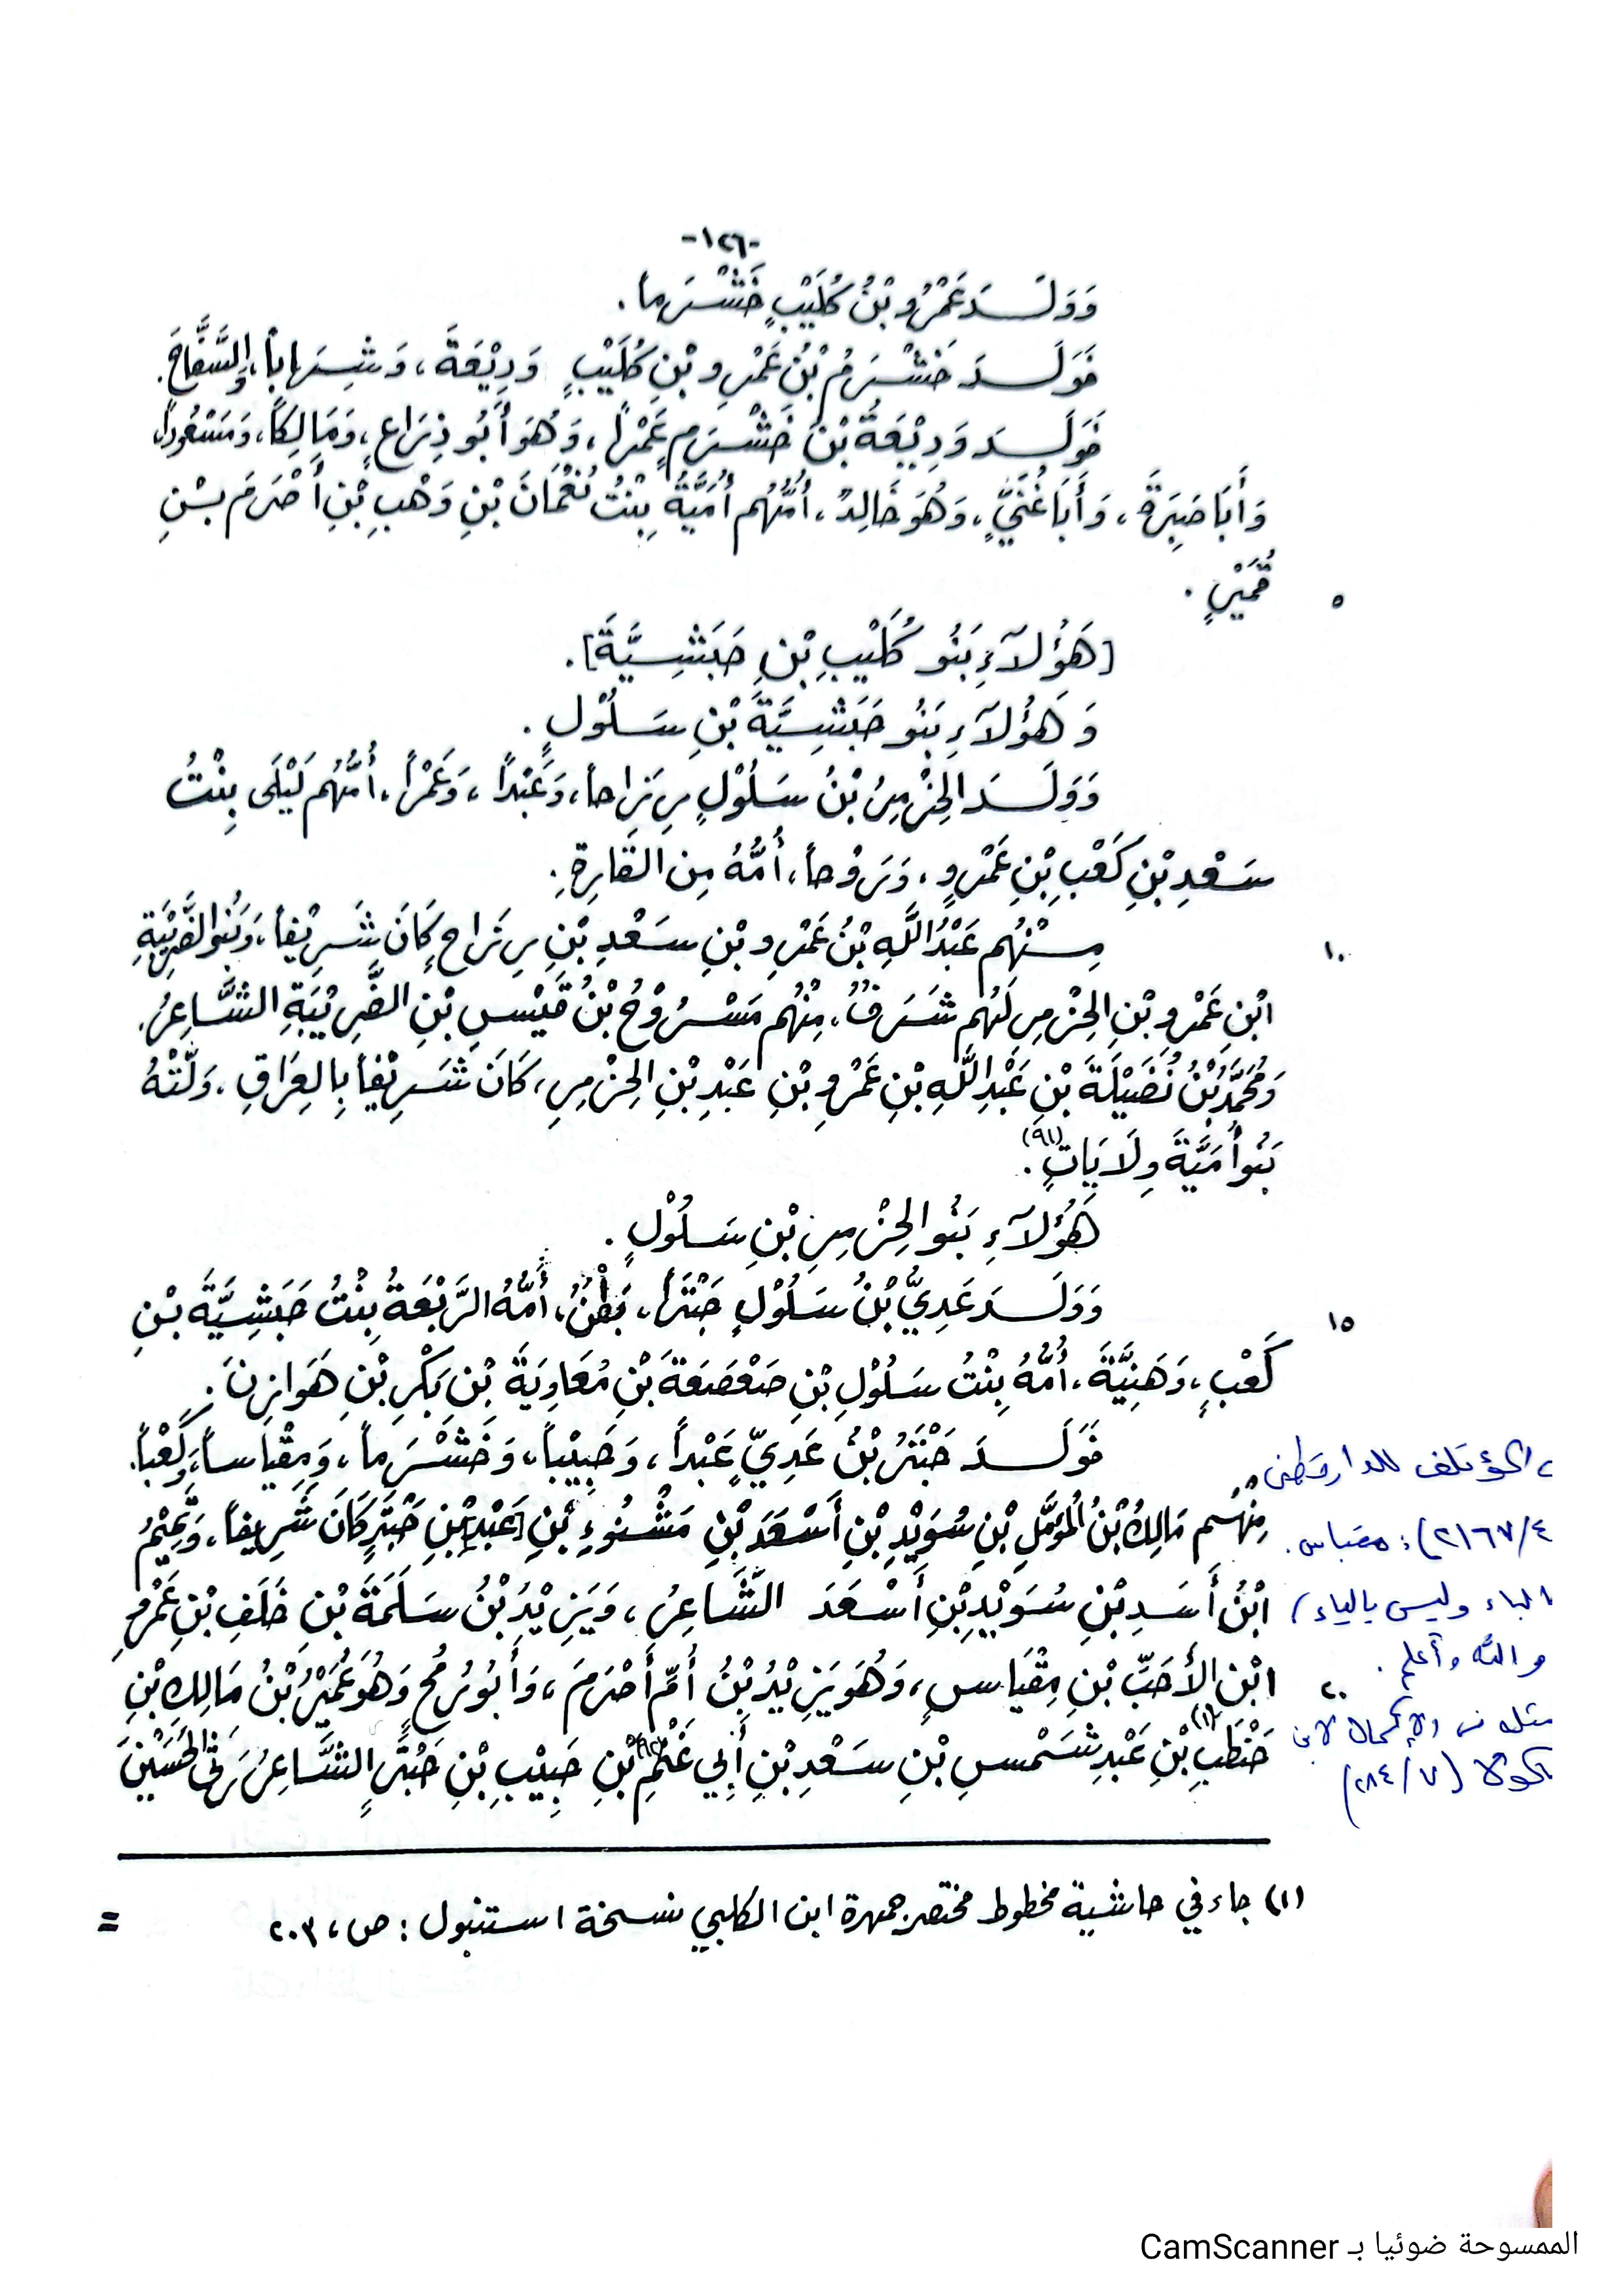 -١٢٦-
وَوَلَدَ عَمْرُو بْنُ كُلَيْبٍ خَشْرَماً .
فَوَلَدَ خَشْرَمُ بْنُ عَمْرِو بْنِ كُلَيْبٍ وَدِيْعَةَ ، وَشِهَاباً ، وَالسَّفَّاحَ .
فَوَلَدَ وَدِيْعَةُ بْنُ خَشْرَمٍ عَمْراً ، وَهُوَ أَبُو ذِرَاعٍ ، وَمَالِكاً ، وَمَسْعُوداً ،
وَأَبَا صَبِرَةَ ، وَأَبَا غُنَيٍّ ، وَهُوَ خَالِدٌ ، أُمُّهُم أُمَيَّةُ بِنْتُ نُعْمَانَ بْنِ وَهْبِ بْنِ أَصْرَمَ بْنِ
قُمَيْرٍ . ٥
[هَؤُلآءِ بَنُو كُلَيْبِ بْنِ حَبَشِيَّةَ] .
وَهَؤُلآءِ بَنُو حَبَشِيَّةَ بْنِ سَلُوْلٍ .
وَوَلَدَ الحِزْمِرُ بْنُ سَلُوْلٍ رِزَاحاً ، وَعَبْداً ، وَعَمْراً ، أُمُّهُم لَيْلَى بِنْتُ
سَعْدِ بْنِ كَعْبِ بْنِ عَمْرٍو ، وَرَوْحاً ، أُمُّهُ مِن القَارِةِ .
مِنْهُم عَبْدُ اللَّهِ بْنُ عَمْرِو بْنِ سَعْدِ بْنِ رِزَاحٍ كَانَ شَرِيْفاً ، وَبَنُو الضَّرِيْبَةِ ١٠
ابْنِ عَمْرِو بْنِ الحِزْمِرِ لَهُم شَرَفٌ ، مِنْهُم مَسْرُوْحُ بْنُ قَيْسِ بْنِ الضَّرِيْبَةِ الشَّاعِرُ .
وَمُحَمَّدُ بْنُ نُضَيْلَةَ بْنِ عَبْدِ اللَّهِ بْنِ عَمْرِو بْنِ عَبْدِ بْنِ الحِزْمِرِ ، كَانَ شَرِيْفاً بِالعِرَاقِ ، وَلَّتْهُ
بَنُو أُمَيَّةَ وِلَايَاتٍ (٩١) .
هَؤُلآءِ بَنُو الحِزْمِرِ بْنِ سَلُوْلٍ .
وَوَلَدَ عَدِيُّ بْنُ سَلُوْلٍ حَبْتَراً ، بَطْنٌ ، أُمُّهُ الرَّبْعَةُ بِنْتُ حَبَشِيَّةَ بْنِ ١٥
كَعْبٍ ، وَهَنِيَّةَ ، أُمُّهُ بِنْتُ سَلُوْلِ بْنِ صَعْصَعَةَ بْنِ مُعَاوِيَةَ بْنِ بَكْرِ بْنِ هَوَازِنَ .
فَوَلَدَ حَبْتَرُ بْنُ عَدِيٍّ عَبْداً ، وَحَبِيْباً ، وَخَشْرَماً ، وَمِقْيَاساً ، وَكَعْباً .
مِنْهُم مَالِكُ بْنُ المُؤَمَّلِ بْنِ سُوَيْدِ بْنِ أَسْعَدَ بْنِ مَشْنُوءِ بْنِ [عَبْدِ] بْنِ حَبْتَرٍ كَانَ شَرِيفاً ، وَتَمِيْمُ
ابْنُ أَسَدِ بْنِ سُوَيْدِ بْنِ أَسْعَدَ الشَّاعِرُ ، وَيَزِيْدُ بْنُ سَلَمَةَ بْنِ خَلَفِ بْنِ عَمْرِو
ابْنِ الأَحَبِّ بْنِ مِقْيَاسٍ ، وَهُوَ يَزِيْدُ بْنُ أُمِّ أَصْرَمَ ، وَأَبُو رُمْحٍ وَهُوَ عُمَيْرُ بْنُ مَالِكِ بْنِ ٢٠
حَنْطَبِ (١) بْنِ عَبْدِ شَمْسِ بْنِ سَعْدِ بْنِ أَبِي غَنْمِ (٩٢) بْنِ حَبِيْبِ بْنِ حَبْتَرٍ الشَّاعِرُ رَثَى الحُسَيْنَ
، المؤتلف للدارقطني
٢١٦٧/٤) : مقباس .
الباء وليس بالياء /
والله أعلم .
مثله في الإكمال لابن
ماكولا (٢٨٤/٧)
(١) جاء في حاشية مخطوط مختصر جمهرة ابن الكلبي نسخة استنبول : ص ، ٢٠٣ =
الممسوحة ضوئيا بـ CamScanner